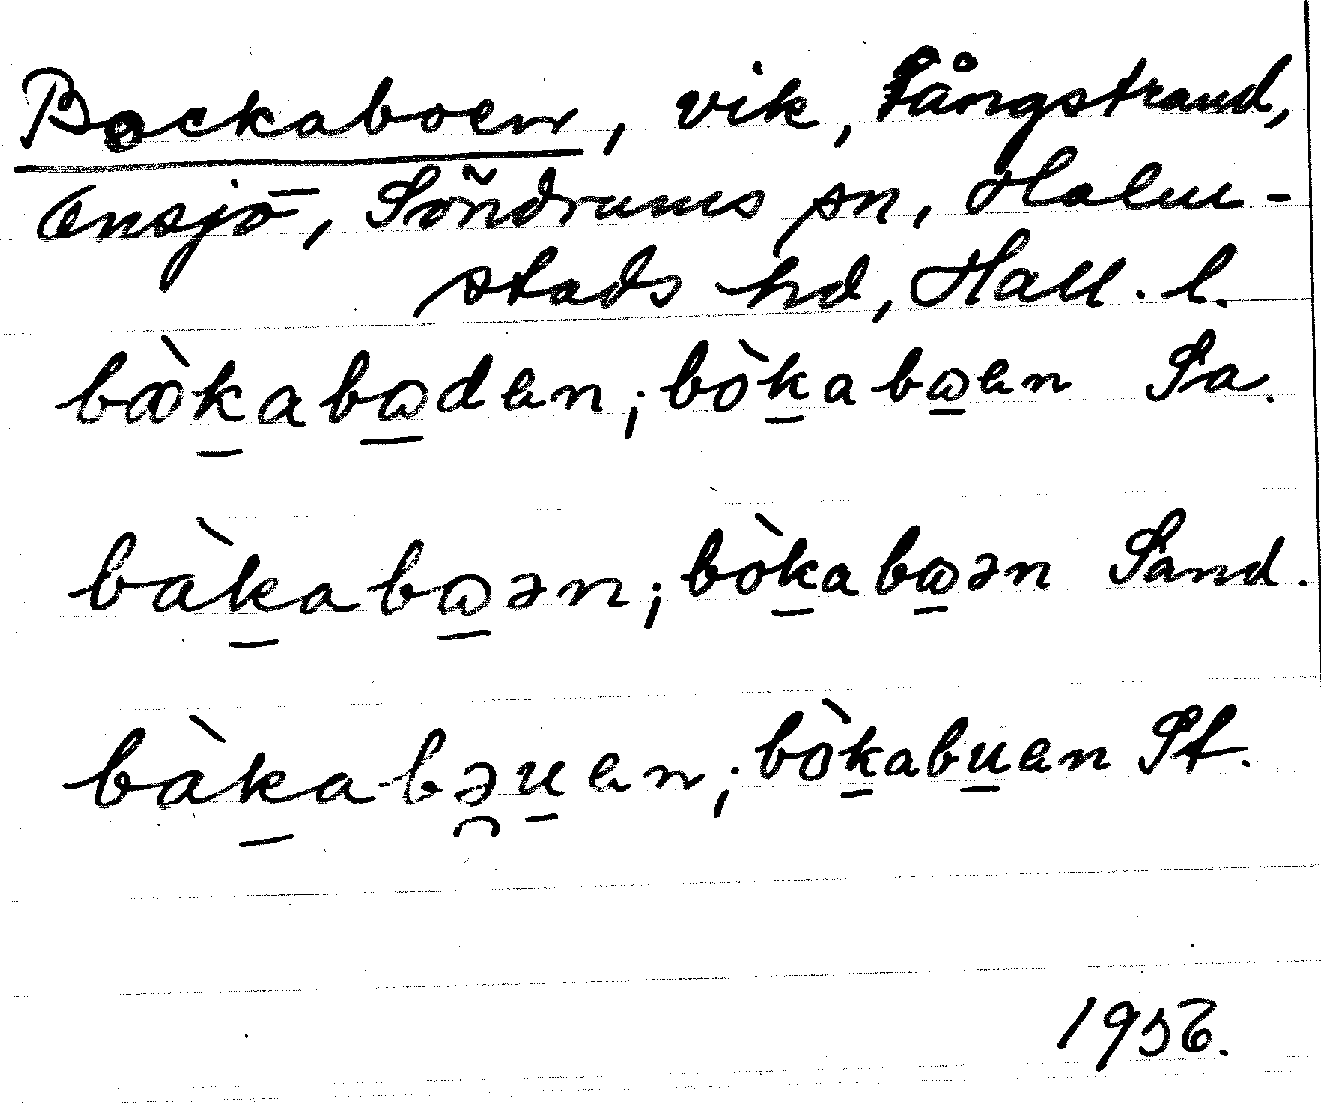 Bockaboen, vik, Fångstrand,
Ensjö, Söndrums sn, Halm-
stads hd, Hall. l.
bòkabωden; bòkabωen Sa.
bàkabωən; bòkabωən Sand.
bàkabəuen; bòkabuen St.
1956.